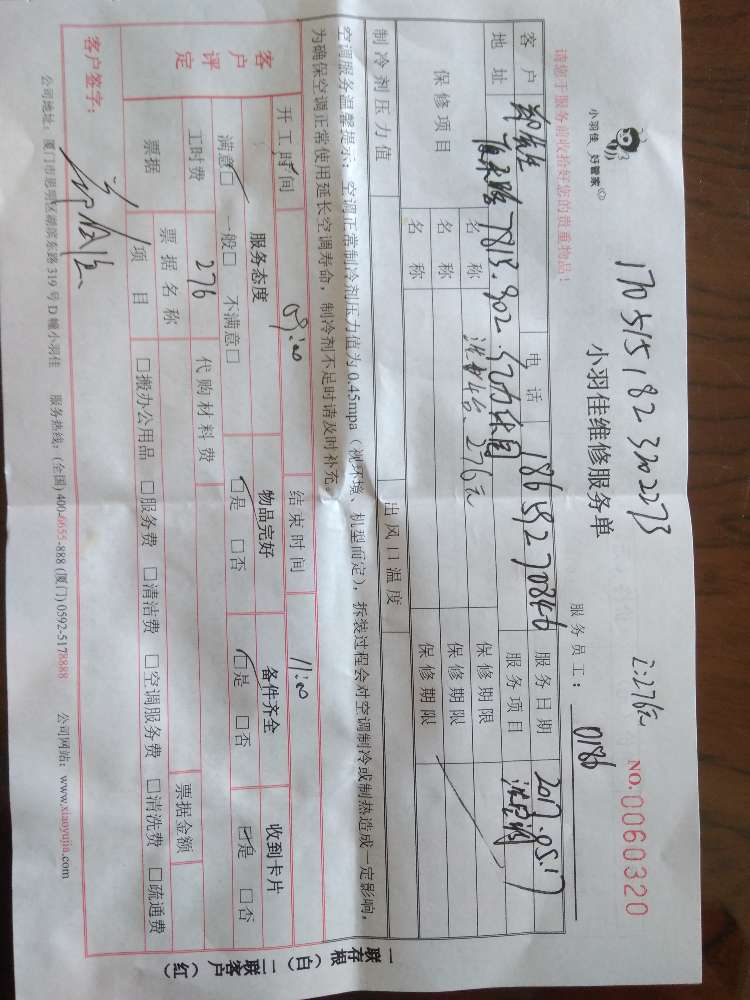 小羽佳 好管家
1705151823202273
2:276元
小羽佳维修服务单
NO.0060320
请您于服务前收拾好您的贵重物品!
服务员工: 0186
客户 郑先生 电话 18659270846 服务日期 2017.05.17
地址 7813.902 服务项目
保修项目 名称 276元 保修期限
名称 保修期限
名称 保修期限
制冷剂压力值 出风口温度
空调服务温馨提示:空调正常制冷剂压力值为0.45mpa(视环境、机型而定),拆装过程会对空调制冷或制热造成一定影响,
为确保空调正常使用延长空调寿命,制冷剂不足时请及时补充。
开工时间 09:00 结束时间 11:00
客户评定 服务态度 物品完好 备件齐全 收到卡片
满意□ 一般□ 不满意□ □是 □否 □是 □否 □是 □否
工时费 276 代购材料费
票据 票据名称 票据金额
项目 □搬办公用品 □服务费 □清洁费 □空调服务费 □清洗费 □疏通费
客户签字:
公司地址:厦门市思明区湖滨东路319号D幢小羽佳 服务热线:(全国)400-6655-888 (厦门)0592-5178888 公司网站:www.xiaoyujia.com
一联存根(白)二联客户(红)